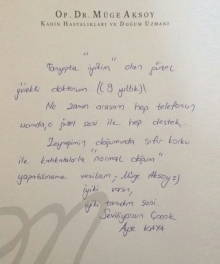 OP. DR. MÜGE AKSOY
KADIN HASTALIKLARI VE DOĞUM UZMANI
Tanıyıpta "iyikim" olan güzel
yürekli doktorum (9 yıllık)
Ne zaman arasam hep telefonun
ucunda, o güzel sesi ile hep destek...
Zeynepimin doğumunda sıfır korku
ile kahkahalarla "normal doğum"
yapabilmeme vesilem; Müge Aksoy :)
iyiki varsın,
iyiki tanıdım seni.
Seviliyorsun Çoook
Ayşe KAYA